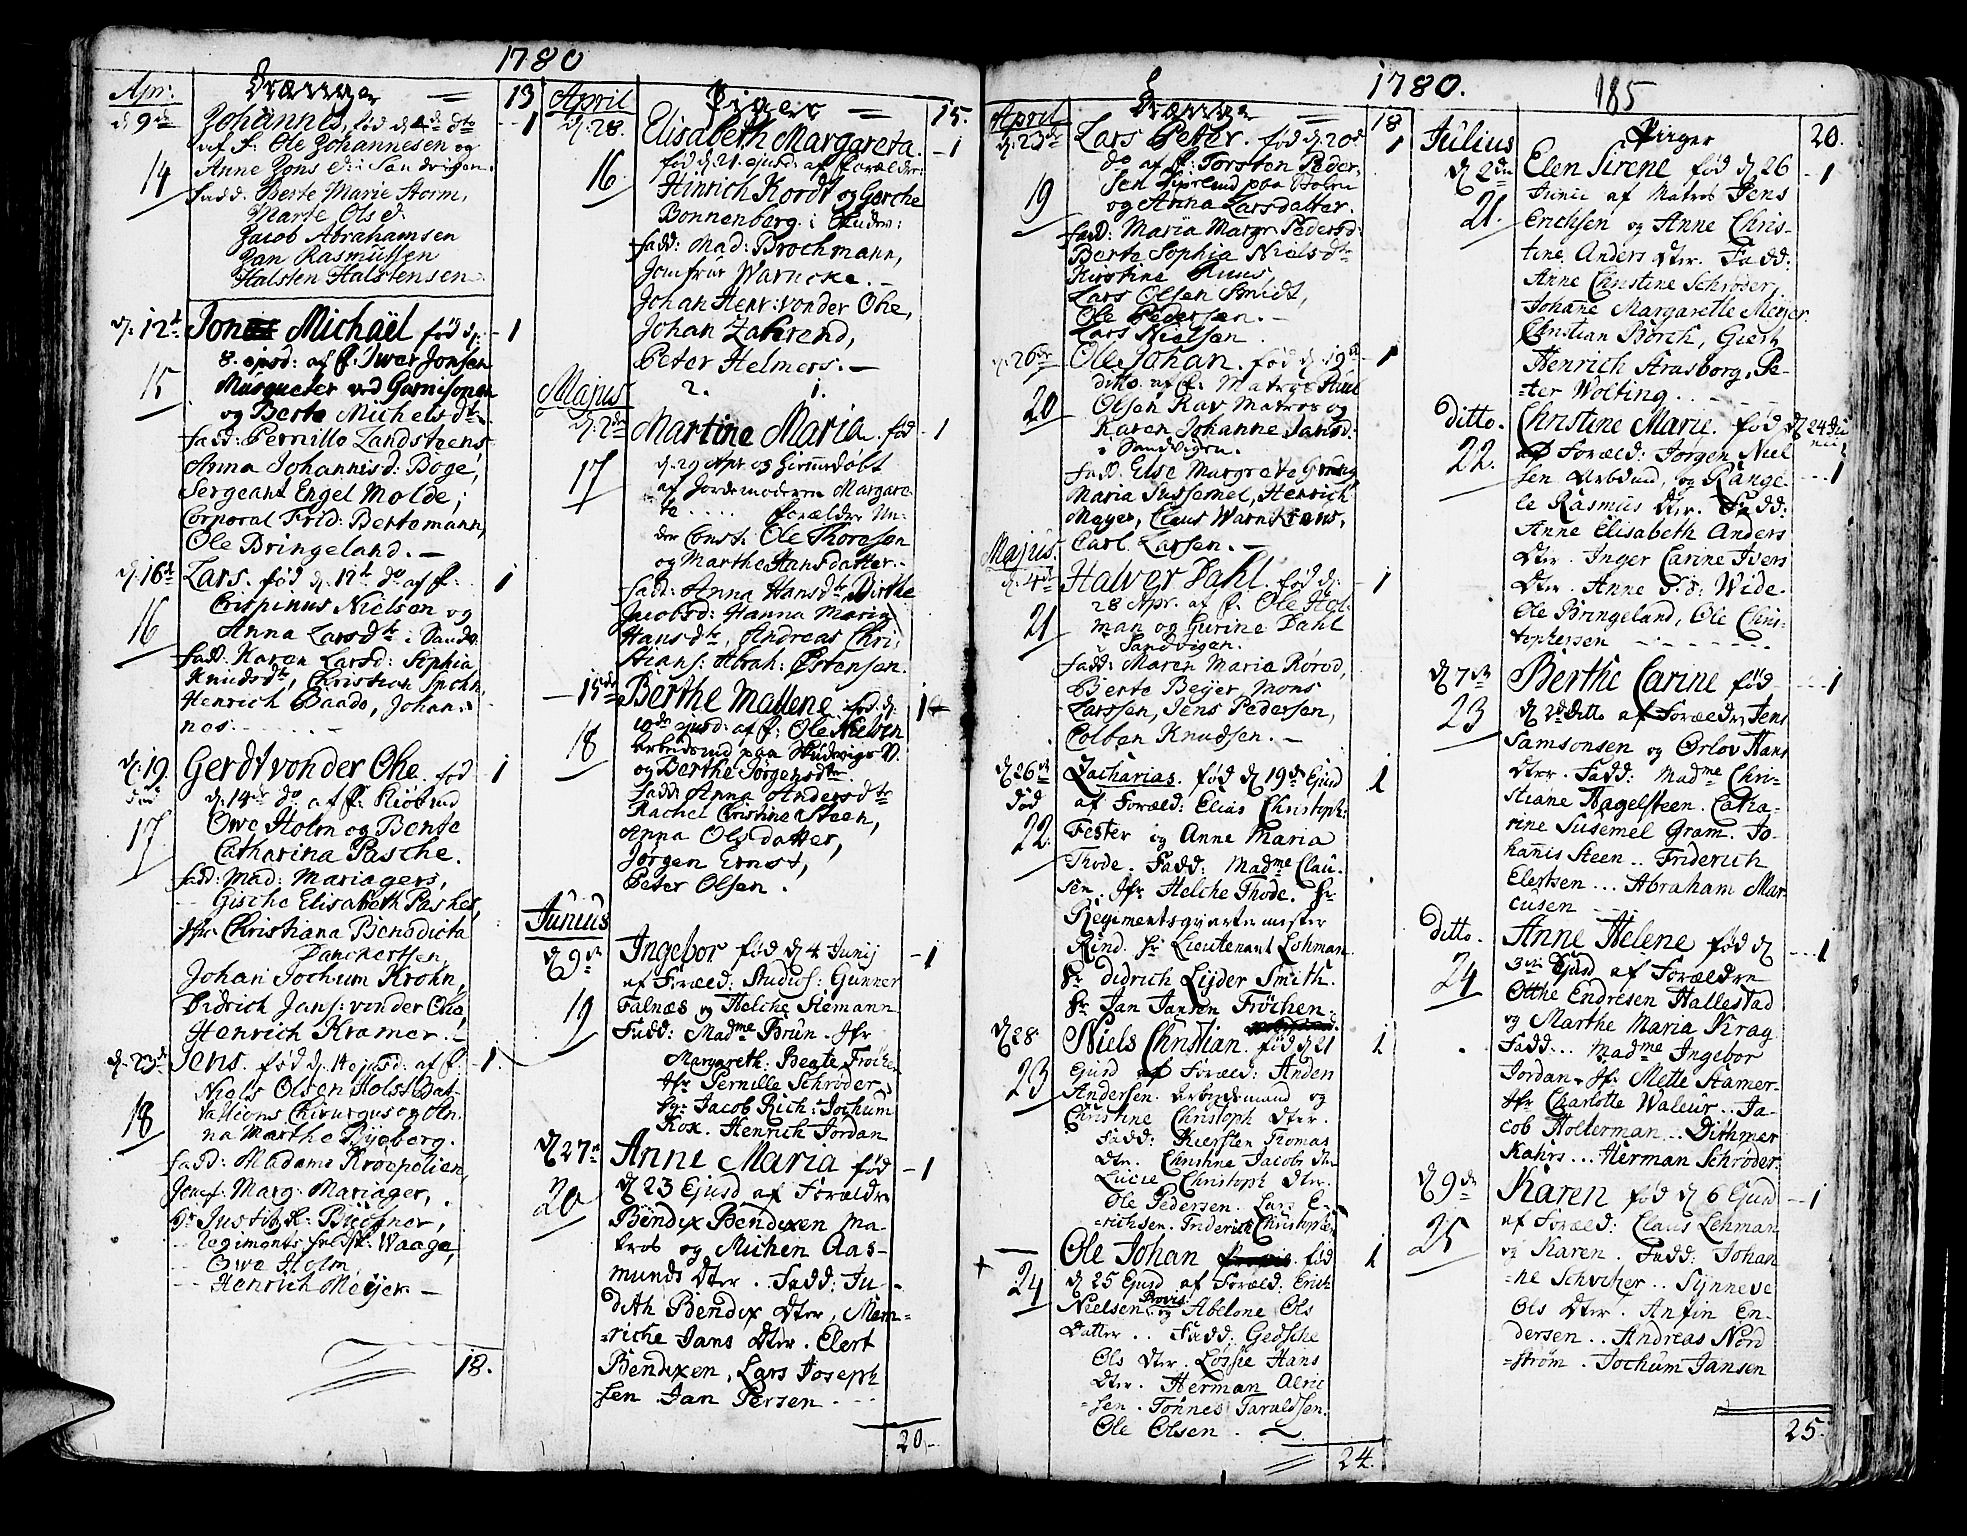 1780
Apr: Drænger = 13
d. 9de Johannes, fød d. 4de dto - 1
af F: Ole Johannesen og
14 Anne Jons d: i Sandvigen.
Fadd. Berte Marie Storm,
Marte Ols d:
Jacob Abrahamsen
Jan Rasmussen
Halsten Halstensen
d. 12te Jon Michaël fød d. - 1
8. ejusd: af F. Iwer Jonsen
15 Musqueter ved Garnisonen
og Berte Michelsdtr
Fadd: Pernille Landsteens
Anna Johannisd: Boge,
Sergeant Engel Molde,
Corporal Frid: Bertomann,
Ole Bringeland. —
d. 16te Lars. fød d. 12te do af F. 1
Crispinus Nielsen og
16 Anna Larsdtr i Sandv.
Fadd. Karen Larsd: Siphia
Knudsdtr, Christian Spohn,
Henrich Baade, Johan-
nes
d. 19. Gerdt von der Ohe. fød 1
død d. 14de do af F:
17 Owe Holm og Bente
Catharina Pasche.
Fadd: Mad: Mariagers,
Gische Elisabeth Pasches,
Jfr Christiana Benedicta
Danckertsen,
Johan Jochum Krohn,
Didrich Jans: von der Ohe,
Henrich Kramer. —
d. 23de Jens. fød d. 14 ejusd: af F. - 1.
Niels Olsen Holst Bat-
18 tallions Chirurgus og An-
na Marthe Bÿeberg.
Fadd: Madame Krøepelien,
Jomf: Marg: Mariager,
Hr Justitzr: Büchner,
Regiments Feldsk: Waage,
Owe Holm,
Henrich Meÿer. —
18.
April Piger = 15.
d. 28. Elisabeth Margareta. - 1
fød d. 21. ejusd: af Forældre:
16 Hinrich Kordt og Gerche
Bonnenberg i Skudev:
Fadd: Mad: Brochmann,
Jomfrue Warncke. —
Johan Henr: von der Ohe,
Johan Zahrend,
Peter Helmers. —
Majus 2. 1.
d. 2den Martine Maria. fød - 1
d. 29 Apr og Hiemmedøbt
17 af Jordemoderen Margare-
te . . . . . Forældre Un-
der Const: Ole Thoresen
og Marthe Hansdatter.
Fadd: Anna Hansdtr Birthe
Jacobsd: Hanna Maria
Hansdtr, Andreas Chri-
stians: Abrah: Østensen.
- 15de Berthe Mallene. fød d. 1
10de ejusd: af F: Ole Nielsen
18 Arbeidsmd paa Skudevigs V.
og Berthe Jørgensdtr.
Fadd: Anna Andersdtr
Rachel Cristine Steen,
Anna Olsdatter,
Jørgen Ernst,
Peter Olsen.
Junius
d 9de Ingebor fød d 4 Junij - 1
af Foræld: Studios: Gunner
19 Falnæs og Helche Siemann
Fadd: Madme Brun. Jfr
Margareth: Beate Frøche
Jfr Pernille Schrøder,
Hr: Jacob Rich: Jochum
Kox. Henrich Jordan
d 27de Anne Maria fød - 1
d 23 Ejusd af Forældre
20 Bendix Bendixen Ma-
tros og Michen Aas-
munds Dter. Fadd: Ju-
dith Bendix Dter, Mem-
riche Jans Dter. Elert
Bendixen, Lars Joseph
sen Jan Persen.
20
1780. 185
April Drænger 18
d. 23de Lars Peter. fød d. 20de 1
do af F: Torsten Peder-
19 sen paa
og Anna Larsdatter.
Fadd: Maria Margr: Pedersd:
Berte Sophia Nielsdtr
Kirstine Ruus,
Lars Olsen Smidt,
Ole Pedersen. —
Lars Nielsen.
d. 26de Ole Johan. fød d. 19de - 1
ditto. af F. Matros
20 Olsen Rav Matros og
Karen Johanne Jansd:
i Sandvigen.
Fadd. Else Margrete
Maria Sussemel, Henrich
Meyer, Claus Warnkens,
Carl Larsen. —
Majus.
d. 4de Halver Dahl. fød d. - 1
28 Apr. af F. Ole Hol-
21 man og Gurine Dahl
i Sandvigen.
Fadd: Maren Maria Rørod,
Berte Beÿer Mons
Larssen, Jens Pedersen,
Colben Knudsen. —
d 26de Zacharias. fød d 19de Ejusd 1
død af Foræld: Elias Christoph:
22 Fester og Anne Maria
Thode. Fadd: Madme Clau-
sen. Jfr Helche Thode. Hr
Regimentsqvartermester
Rind. Hr Lieutenant Lohman.
Hr Didrich Lÿder Smith.
Hr Jan Jansen Frøchen.
d 28. Niels Christian. fød d 21 1
Ejusd af Foræld: Anden
23 Andersen Arbeidsmand og
Christine Christoph Dter.
Fadd: Kiersten Thomas
Dter. Christine Jacobs Dtr
Lucie Christoph Dter.
Ole Pedersen. Lars E-
richsen. Friderich Christophs:
+ — Ole Johan fød 1
24 d 25 Ejusd af Foræld: Erich
Nielsen Provis: og Abelone Ols
Datter . . Fadd: Gedsche
Ols Dter. Løssie Hans
Dter. Herman Alric
sen. Tønnes Taraldsen.
Ole Olsen.
24.
Julius Piger 20.
d 2den Elen Sirene fød d 26 - 1
Junii af Matros Jens
21. Erichsen og Anne Chris-
tine Anders Dter. Fadd:
Anne Christine Schrøder,
Johane Margarethe Meÿer.
Christian Borch, Giert
Henrich Strasborg, Pe-
ter Wolting.
Ditto. Christine Marie. fød d 24 Ju
nii
22. af Foræld: Jorgen Niel - 1
sen Arbdmd, og Range-
le Rasmus Dter. Fadd:
Anne Elisabeth Anders
Dter. Inger Carine Ivers
Dter. Anne P:d: Wide.
Ole Bringeland, Ole Chris-
tophersen
d 7de Berthe Carine fød - 1
23 d 2de Ditto af Forældre Jens
Samsonsen og Orlov Hans
Dter. Fadd: Madme Chri-
stiane Hagelsteen. Catha-
rine Susemel Gram. Jo-
hannis Steen. Friderich
Elertsen... Abraham Mar
cusen
Ditto. Anne Helene fød d - 1
3de Ejusd af Forældre
24 Otthe Endresen Hallestad
og Marthe Maria Krag
Fadd... Madme Ingebor
Jordan. Jfr Mette Stamer.
Jfr Charlotte Waleur. Ja-
cob Holterman... Dithmer
Kahrs... Herman Schrøder.
d 9de Karen fød d 6 Ejusd - 1
af Foræld: Claus Lehman
25 og Karen. Fadd: Johan
ne Schrøder.. Synneve
Ols Dter. Anfin En-
dersen.. Andreas Nord
strøm. Jochum Jansen
25.